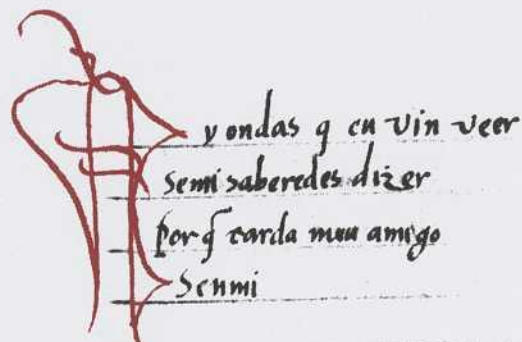 Ay ondas q eu vin veer
semi saberedes dizer
por q̃ tarda meu amigo
senmi